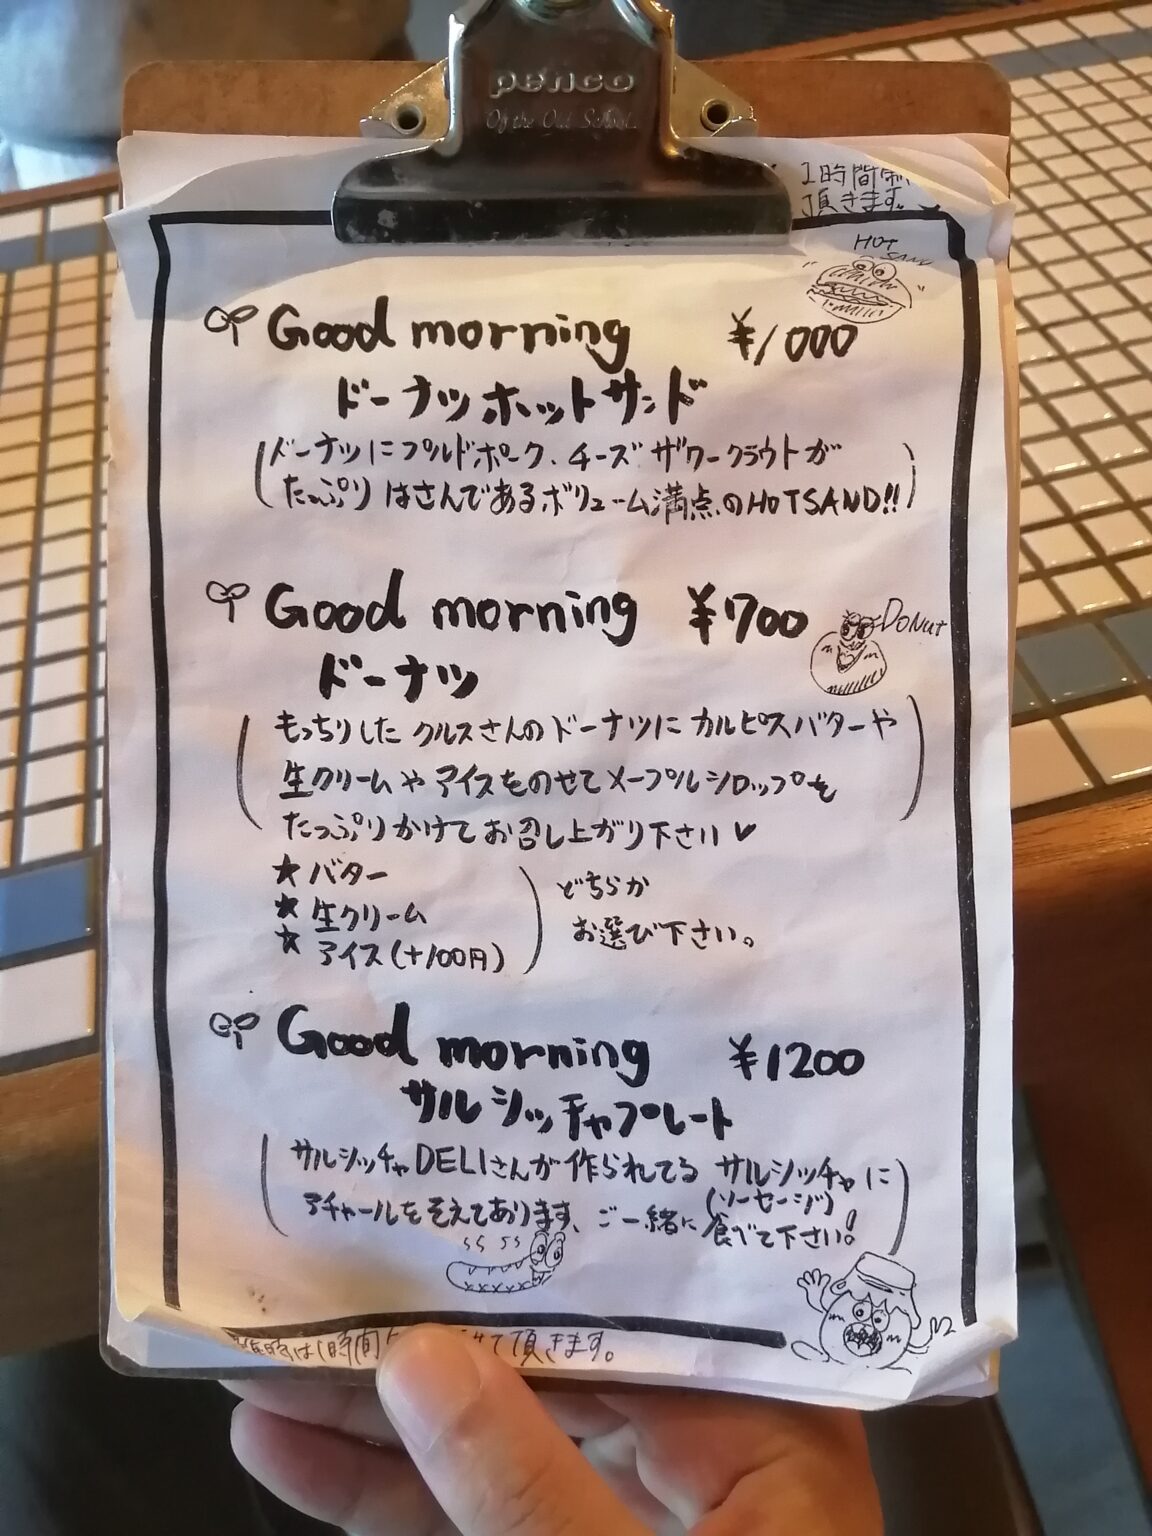 penco
Of the Old School.
1時間制
頂きます。
HOT
SAND
Good morning ¥1000
ドーナツホットサンド
(ドーナツにプルドポーク、チーズ ザワークラウトが
たっぷり はさんであるボリューム満点のHOTSAND!!)
Good morning ¥700
DONUT
ドーナツ
(もっちりした クルスさんのドーナツに カルピスバターや
生クリームや アイスをのせて メープルシロップを
たっぷりかけて お召し上がり下さい♥)
★ バター
★ 生クリーム
★ アイス(+100円)
どちらか
お選び下さい。
Good morning ¥1200
サルシッチャプレート
(サルシッチャDELIさんが作られてる サルシッチャに
(ソーセージ)
アチャールをそえてあります、ご一緒に食べて下さい!)
は1時間 て頂きます。